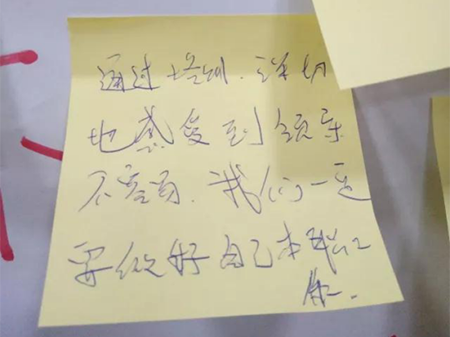 通过培训.深切
地感受到领导
不容易.我们一定
要做好自己本职工
作.